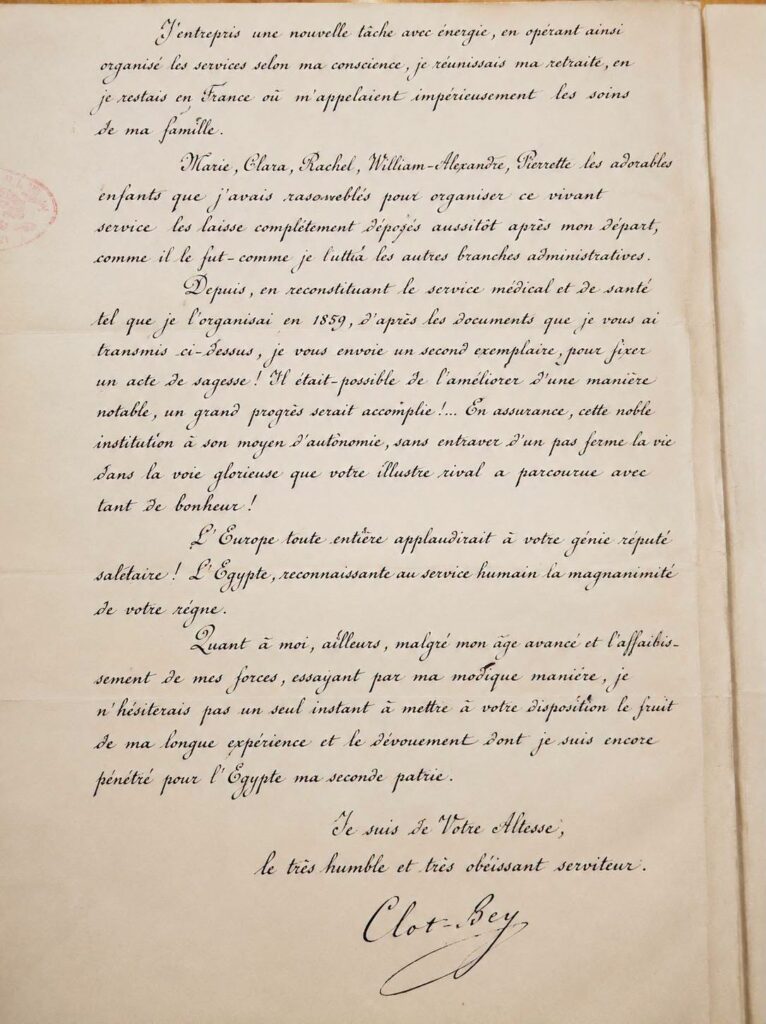 J'entrepris une nouvelle tâche avec énergie, en opérant ainsi
organisé les services selon ma conscience, je réunissais ma retraite, en
je restais en France où m'appelaient impérieusement les soins
de ma famille.
Marie, Clara, Rachel, William-Alexandre, Pierrette les adorables
enfants que j'avais pour organiser ce vivant
service les laisse complétement déposés aussitôt après mon départ,
comme il le fut-comme je les autres branches administratives.
Depuis, en reconstituant le service médical et de santé
tel que je l'organisai en 1859, d'après les documents que je vous ai
transmis ci-dessus, je vous envoie un second exemplaire, pour fixer
un acte de sagesse! Il était-possible de l'améliorer d'une manière
notable, un grand progrès serait accomplie!... En assurance, cette noble
institution à son moyen d'autônomie, sans entraver d'un pas ferme la vie
dans la voie glorieuse que votre illustre rival a parcourue avec
tant de bonheur!
L'Europe toute entière applaudirait à votre génie réputé
salétaire! L'Egypte, reconnaissante au service humain la magnanimité
de votre régne.
Quant à moi, ailleurs, malgré mon âge avancé et l'affaibis-
sement de mes forces, essayant par ma modique maniére, je
n'hésiterais pas un seul instant à mettre à votre disposition le fruit
de ma longue expérience et le dévouement dont je suis encore
pénétré pour l'Egypte ma seconde patrie.
Je suis de Votre Altesse,
le très humble et très obéissant serviteur.
Clot-Bey